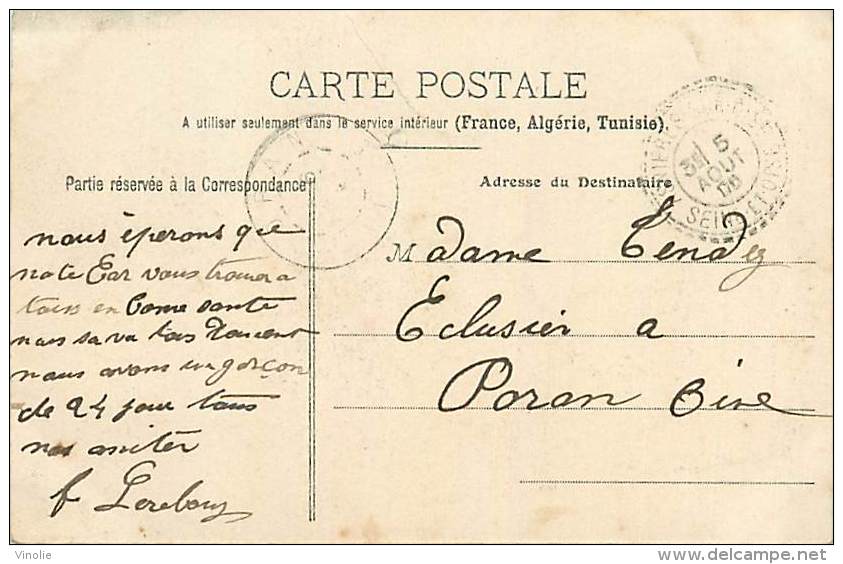 CARTE POSTALE
A utiliser seulement dans le service intérieur (France, Algérie, Tunisie).
Partie réservée à la Correspondance
Adresse du Destinataire
3E / 5
AOUT
06
SEINE
nous éperons que
note Car vous trouvera
tous en bone sante
nous
nous avons un garçon
de 24 jour tous
nos
f Lerebouz
Madame
Eclusier a
Poran Oise
Vinolie
www.delcampe.net